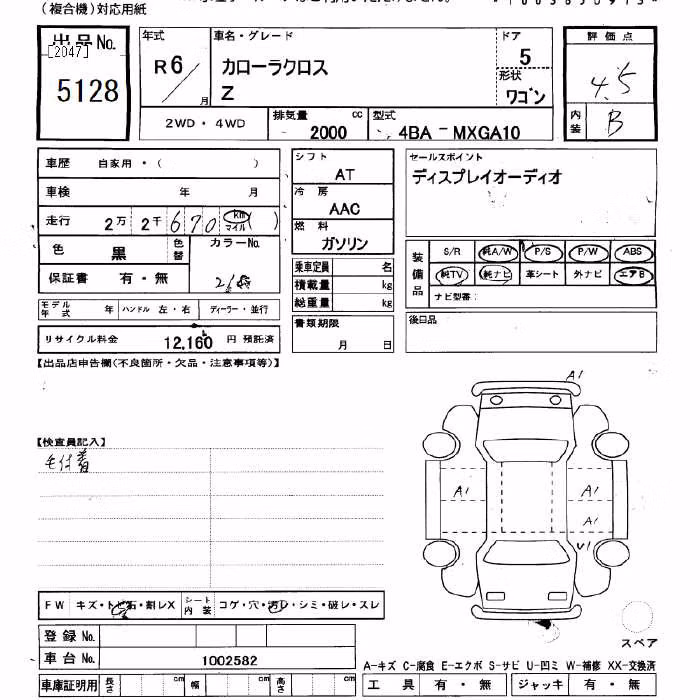 (複合機)対応用紙
出品No.
[2047]
5128
年式
R6
月
車名・グレード
カローラクロス
Z
ドア
5
形状
ワゴン
評価点
4.5
内装
B
2WD・4WD
排気量
cc
2000
型式
4BA－MXGA10
車歴 自家用・( )
車検 年 月
走行 2万 2千 670 km マイル ( )
色 黒
色替
カラーNo.
保証書 有・無
モデル年式 年 ハンドル 左・右 ディーラー・並行
リサイクル料金 12,160 円 預託済
シフト
AT
冷房
AAC
燃料
ガソリン
乗車定員 名
積載量 kg
総重量 kg
書類期限
月 日
セールスポイント
ディスプレイオーディオ
装備品
S/R 純A/W P/S P/W ABS
純TV 純ナビ 革シート 外ナビ エアB
ナビ型番:
後日品
【出品店申告欄(不良箇所・欠品・注意事項等)】
【検査員記入】
毛付着
A1
A1
A1
A1
スペア
FW キズ・トビ石・割レX シート内装 コゲ・穴・汚レ・シミ・破レ・スレ
登録No.
車台No. 1002582
車庫証明用 長さ cm 幅 cm 高さ cm
A-キズ C-腐食 E-エクボ S-サビ U-凹ミ W-補修 XX-交換済
工具 有・無 ジャッキ 有・無